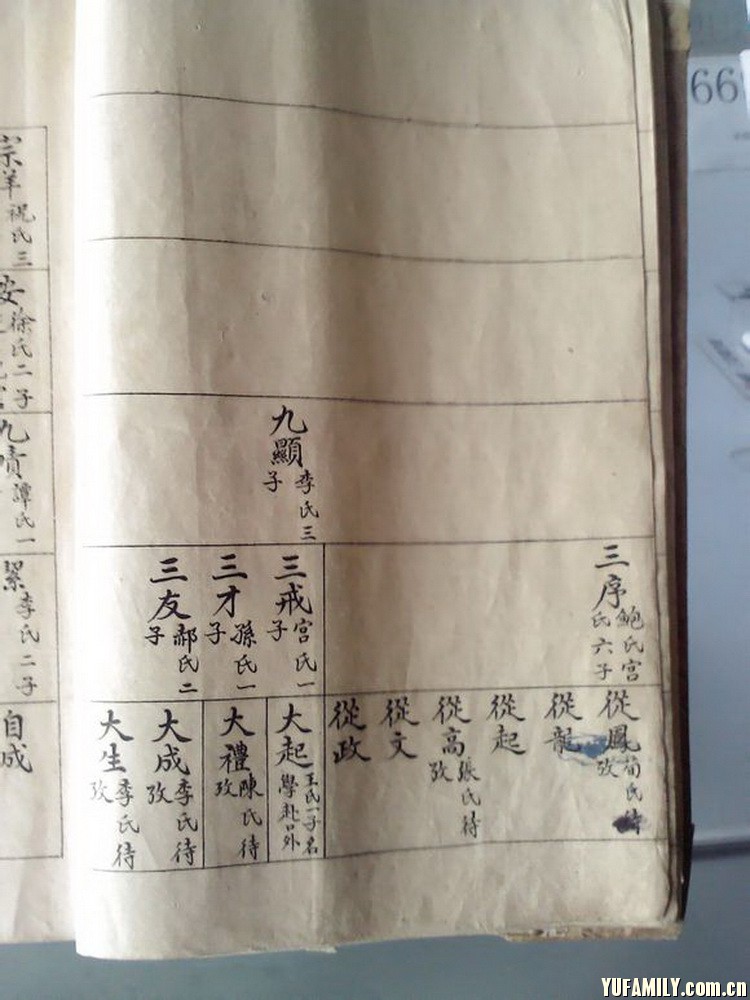 三序 鮑氏宮氏六子
從鳳 荀氏待攷
從龍
從起
從高 張氏待攷
從文
從政
九顯 李氏三子
三戒 宮氏一子
三才 孫氏一子
三友 郝氏二子
大起 王氏一子名學赴口外
大禮 陳氏待攷
大成 李氏待攷
大生 李氏待攷
宗羊 祝氏三
安 徐氏二子
九 譚氏一
李氏二子
自成
66
YUFAMILY.com.cn